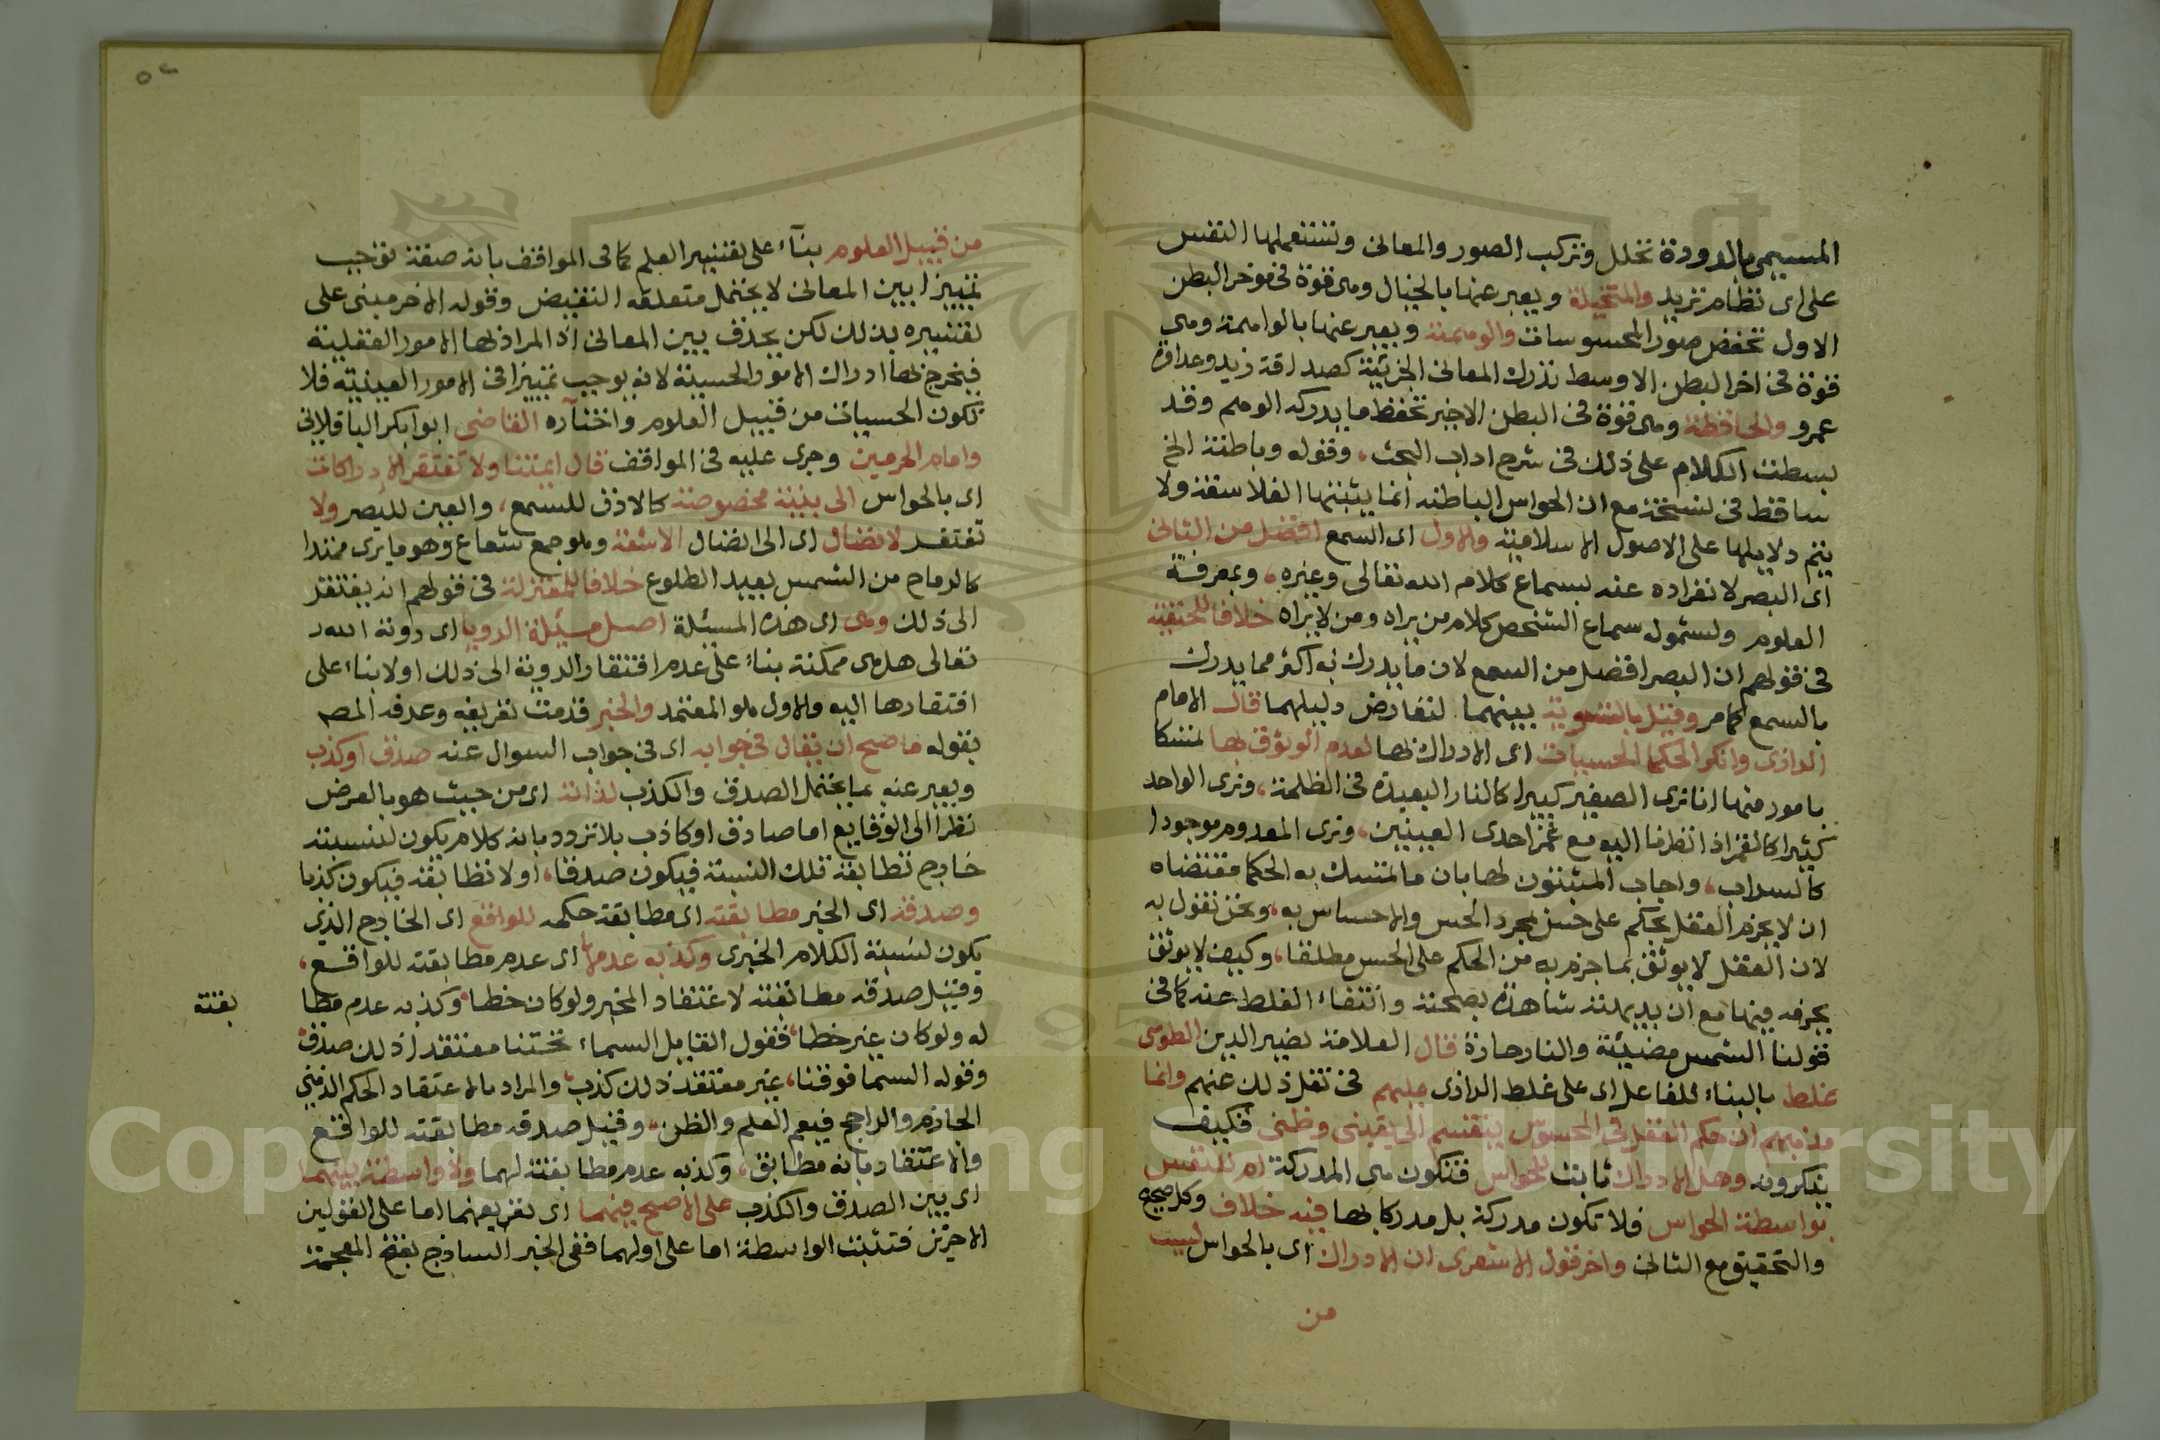 المسمى بالدودة تحلل وتركب الصور والمعانى وتستعملها النفس
على اى نظام تريد والمتخيلة ويعبر عنها بالخيال وهى قوة فى موخر البطن
الاول تحفظ صور المحسوسات والوهمية ويعبر عنها بالواهمة وهى
قوة فى اخر البطن الاوسط تدرك المعانى الجزئية كصداقة زيد وعداوة
عمرو والحافظة وهى قوة فى البطن الاخير تحفظ ما يدركه الوهم وقد
بسطت الكلام على ذلك فى شرح اداب البحث، وقوله وباطنة الخ
ساقط فى نسخة مع ان الحواس الباطنة انما يثبتها الفلاسفة ولا
يتم دلايلها على الاصول الاسلامية والاول اى السمع افضل من الثانى
اى البصر لانفراده عنه بسماع كلام الله تعالى وغيره، وبمعرفة
العلوم ولشموله سماع الشخص كلام من يراه ومن لا يراه خلافا للحنفية
فى قولهم ان البصر افضل من السمع لان ما يدرك به اكثر مما يدرك
بالسمع كما مر وقيل بالتسوية بينهما لتعارض دليلهما قال الامام
الرازى وانكر الحكما الحسيات اى الادراك بها لعدم الوثوق بها تمسكا
بامور منها انا نرى الصغير كبيرا كالنار البعيدة فى الظلمة، ونرى الواحد
كثيرا كالقمر اذا نظرنا اليه مع غمز احدى العينين، ونرى المعدوم موجودا
كالسراب، واجاب المثبتون لها بان ما تمسك به الحكما مقتضاه
ان لا يجزم العقل بحكم على حس بمجرد الحس والاحساس به، ونحن نقول به
لان العقل لا يوثق بما جزم به من الحكم على الحس مطلقا، وكيف لا يوثق
بجزمه فيها مع ان بديهته شاهدة بصحته وانتفاء الغلط عنه كما فى
قولنا الشمس مضيئة والنار حارة قال العلامة نصير الدين الطوسى
غلط بالبناء للفاعل اى على غلط الرازى عليهم فى نقل ذلك عنهم وانما
مذهبهم ان حكم العقل فى المحسوس ينقسم الى يقينى وظنى فكيف
ينكرونه وهل الادراك ثابت للحواس فتكون هى المدركة ام للنفس
بواسطة الحواس فلا تكون مدركة بل مدركا بها فيه خلاف وكل صحيح
والتحقيق مع الثانى واخر قول الاشعرى ان الادراك اى بالحواس ليست
من
من قبيل العلوم بناء على تفسير العلم كما فى المواقف بانه صفة توجب
تمييزا بين المعانى لا يحتمل متعلقه النقيض وقوله الاخر مبنى على
تفسيره بذلك لكن بحذف بين المعانى اذ المراد بها الامور العقلية
فيخرج بها ادراك الامور الحسية لانه يوجب تمييزا فى الامور العينية فلا
تكون الحسيات من قبيل العلوم واختاره القاضى ابو ابكر الباقلانى
وامام الحرمين وجرى عليه فى المواقف قال ايمتنا ولا تفتقر الادراكات
اى بالحواس الى بنية مخصوصة كالاذن للسمع، والعين للبصر ولا
تفتقر لاتصال اى الى اتصال الاشعة وهو جمع شعاع وهو ما يرى ممتدا
كالرماح من الشمس بعيد الطلوع خلافا للمعتزلة فى قولهم انه يفتقر
الى ذلك وهى اى هذه المسئلة اصل مسئلة الرويا اى روية الله
تعالى هل هى ممكنة بناء على عدم افتقار الروية الى ذلك اولا بناء على
افتقارها اليه والاول هو المعتمد والخبر قدمت تعريفه وعرفه المص
بقوله ما صح ان يقال فى جوابه اى فى جواب السوال عنه صدق او كذب
ويعبر عنه بما يحتمل الصدق والكذب لذاته اى من حيث هو بالعرض
نظرا الى الوقايع اما صادق او كاذب بلا تردد بانه كلام يكون لنسبته
خارج تطابقه تلك النسبة فيكون صدقا، او لا تطابقه فيكون كذبا
وصدقه اى الخبر مطابقته اى مطابقة حكمه للواقع اى الخارج الذى
يكون لنسبة الكلام الخبرى وكذبه عدمها اى عدم مطابقته للواقع،
وقيل صدقه مطابقته لاعتقاد المخبر ولو كان خطا وكذبه عدم مطا
بقته
له ولو كان غير خطا، فقول القايل السماء تحتنا معتقدا ذلك صدق
وقوله السما فوقنا، غير معتقد ذلك كذب، والمراد بالاعتقاد الحكم الذهنى
الجازم والراجح فيعم العلم والظن، وقيل صدقه مطابقته للواقع
والاعتقاد بانه مطابق، وكذبه عدم مطابقته لهما ولا واسطة بينهما
اى بين الصدق والكذب على الاصح فيهما اى تفريعهما اما على القولين
الاخرين فتثبت الواسطة اما على اولهما ففى الخبر الساذج بفتح المعجمة